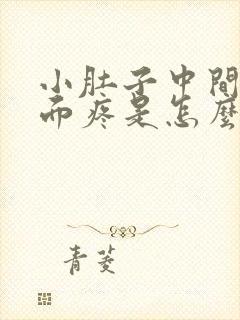 小肚子中間
而疼是怎麼
青菱